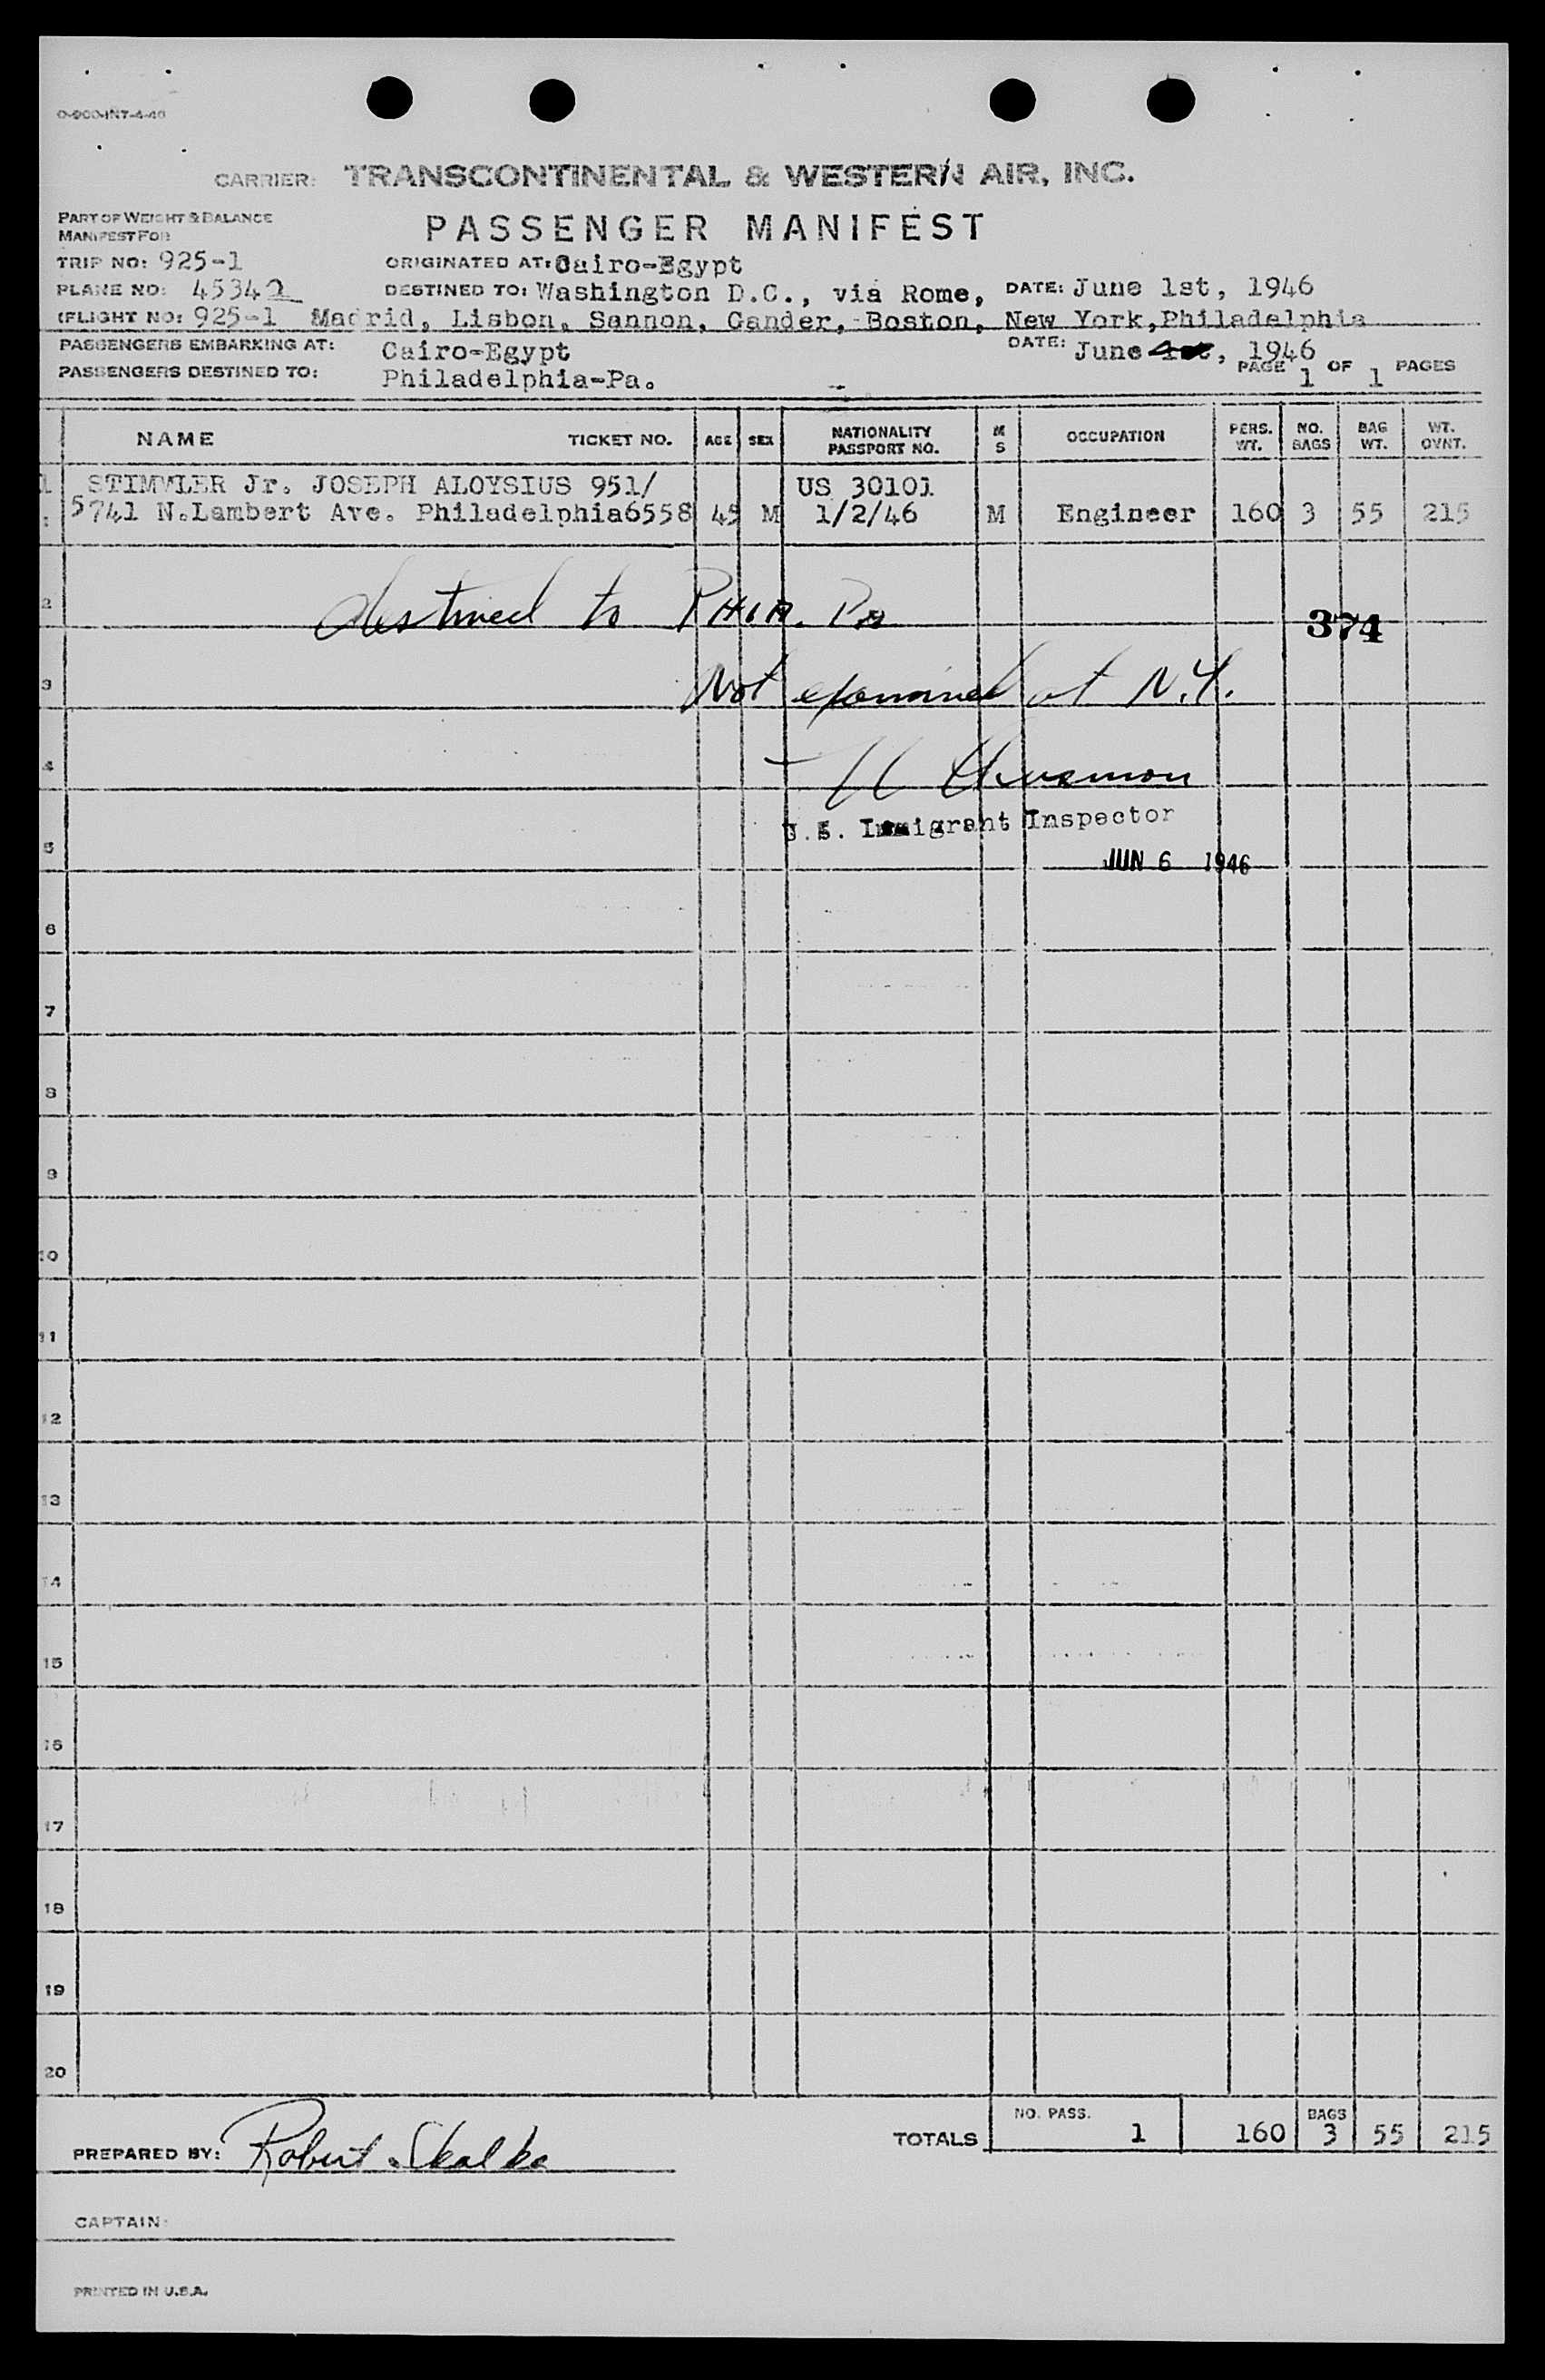 O-900-INT-4-46
CARRIER: TRANSCONTINENTAL & WESTERN AIR, INC.
PART OF WEIGHT & BALANCE
MANIFEST FOR
PASSENGER MANIFEST
TRIP NO: 925-1 ORIGINATED AT: Cairo-Egypt
PLANE NO: 45342 DESTINED TO: Washington D.C., via Rome, DATE: June 1st, 1946
(FLIGHT NO: 925-1 Madrid, Lisbon, Sannon, Gander, Boston, New York, Philadelphia
PASSENGERS EMBARKING AT: Cairo-Egypt DATE: June 1st, 1946
PASSENGERS DESTINED TO: Philadelphia-Pa. PAGE 1 OF 1 PAGES
NAME TICKET NO. AGE SEX NATIONALITY PASSPORT NO. M S OCCUPATION PERS. WT. NO. BAGS BAG WT. WT. OVNT.
1 STIMMLER Jr. JOSEPH ALOYSIUS 951/ US 30101
5741 N.Lambert Ave. Philadelphia6558 45 M 1/2/46 M Engineer 160 3 55 215
2 destined to PHILA. PA
374
3 Not examined at N.Y.
4
U.S. Immigrant Inspector
5
JUN 6 1946
6
7
8
9
10
11
12
13
14
15
16
17
18
19
20
PREPARED BY: Robert Skalka TOTALS NO. PASS. 1 160 BAGS 3 55 215
CAPTAIN:
PRINTED IN U.S.A.